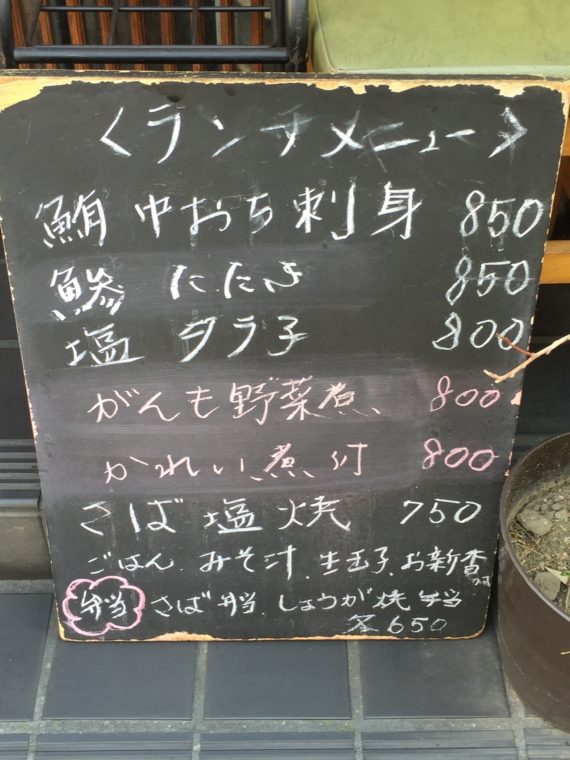 〈ランチメニュー〉
鮪中おち刺身 850
鯵たたき 850
塩タラ子 800
がんも野菜煮 800
かれい煮付 800
さば塩焼 750
ごはん、みそ汁、生玉子、お新香付
弁当 さば弁当、しょうが焼弁当
各650